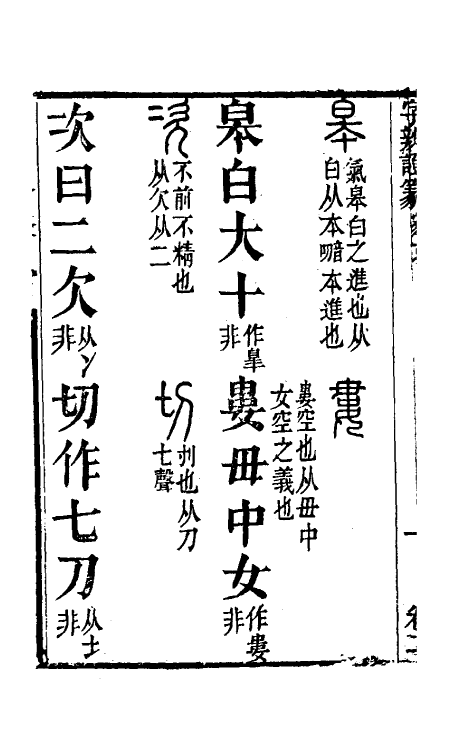 皋
氣皋白之進也从
白从本暗本進也
婁
婁空也从毌中
女空之義也
皋白大十
作皐
非
婁毌中女
作婁
非
次
不前不精也
从欠从二
切
刌也从刀
七聲
次曰二欠
从冫
非
切作七刀
从土
非
卷二